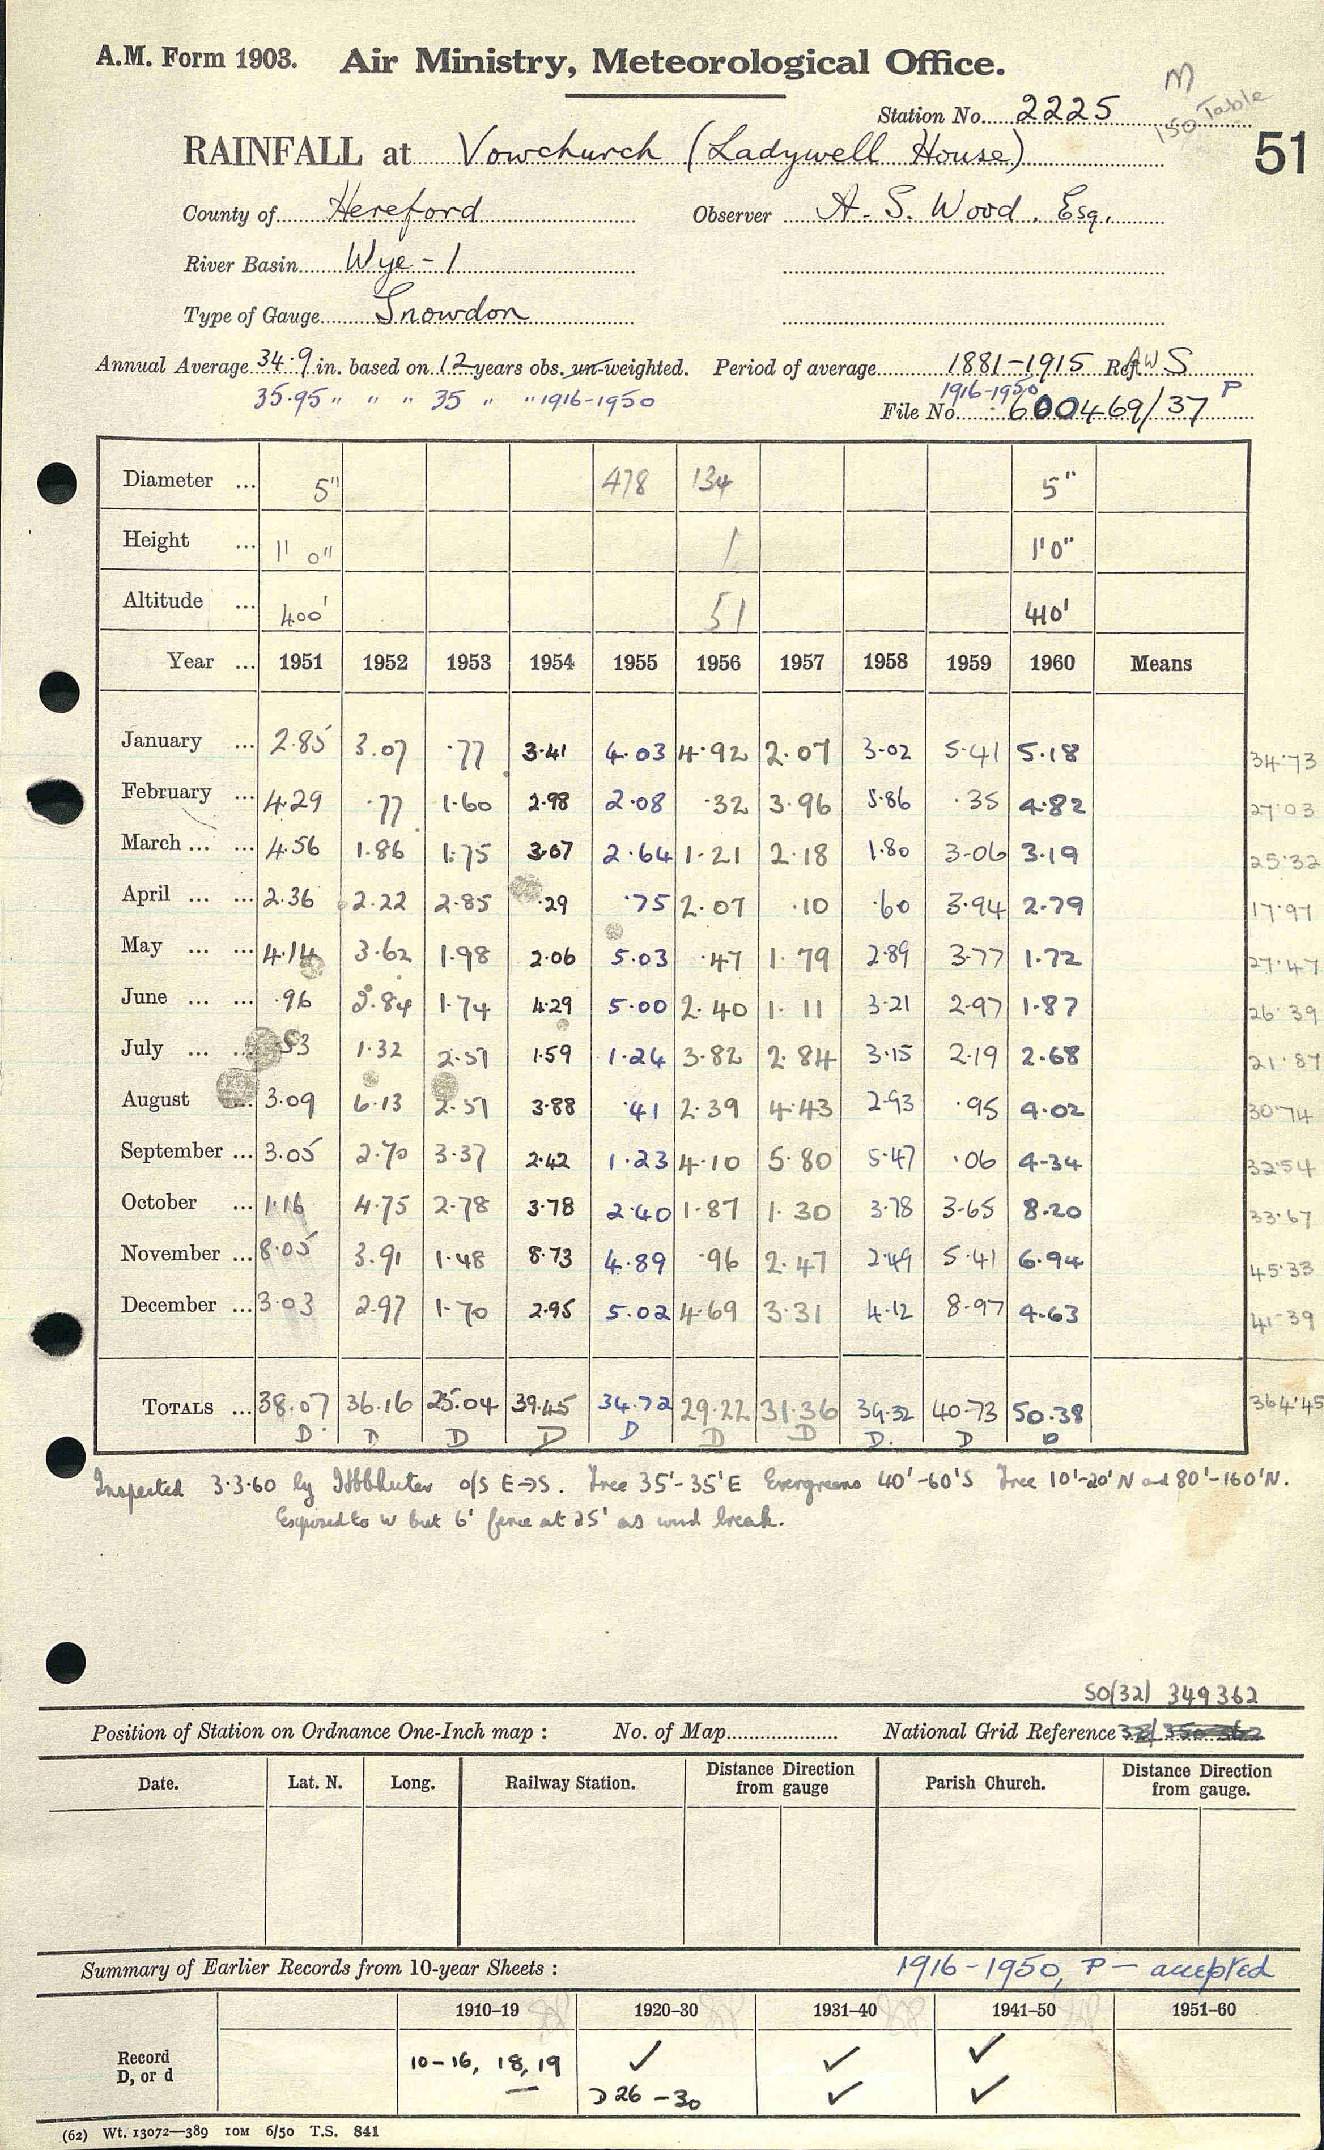 A.M. Form 1903. Air Ministry, Meteorological Office.
M
150 Table
Station No. 2225
51
RAINFALL at Vowchurch (Ladywell House)
County of Hereford Observer A. S. Wood. Esq.
River Basin Wye - 1
Type of Gauge Snowdon
Annual Average 34.9 in. based on 12 years obs. un-weighted. Period of average 1881-1915 Ref. AWS
35.95 " " " 35 " " 1916-1950 1916-1950 P
File No. 600469/37
Diameter ... 5" 478 134 5"
Height ... 1' 0" 1 1'0"
Altitude ... 400' 51 410'
Year ... 1951 1952 1953 1954 1955 1956 1957 1958 1959 1960 Means
January ... 2.85 3.07 .77 3.41 4.03 4.92 2.07 3.02 5.41 5.18 34.73
February ... 4.29 .77 1.60 2.98 2.08 .32 3.96 5.86 .35 4.82 27.03
March ... ... 4.56 1.86 1.75 3.07 2.64 1.21 2.18 1.80 3.06 3.19 25.32
April ... ... 2.36 2.22 2.85 .29 .75 2.07 .10 .60 3.94 2.79 17.97
May ... ... 4.14 3.62 1.98 2.06 5.03 .47 1.79 2.89 3.77 1.72 27.47
June ... ... .96 2.84 1.74 4.29 5.00 2.40 1.11 3.21 2.97 1.87 26.39
July ... ... .53 1.32 2.51 1.59 1.24 3.82 2.84 3.15 2.19 2.68 21.87
August ... 3.09 6.13 2.51 3.88 .41 2.39 4.43 2.93 .95 4.02 30.74
September ... 3.05 2.70 3.37 2.42 1.23 4.10 5.80 5.47 .06 4.34 32.54
October ... 1.16 4.75 2.78 3.78 2.40 1.87 1.30 3.78 3.65 8.20 33.67
November ... 8.05 3.91 1.48 8.73 4.89 .96 2.47 2.49 5.41 6.94 45.33
December ... 3.03 2.97 1.70 2.95 5.02 4.69 3.31 4.12 8.97 4.63 41.39
TOTALS ... 38.07 36.16 25.04 39.45 34.72 29.22 31.36 39.32 40.73 50.38 364.45
D D D D D D D D. D D
Inspected 3.3.60 by o/S E→S. Tree 35'-35'E Evergreens 40'-60'S Tree 10'-20'N and 80'-160'N.
Exposed to W but 6' fence at 25' as wind break.
SO(32) 349362
Position of Station on Ordnance One-Inch map : No. of Map National Grid Reference 32/350 362
Date. Lat. N. Long. Railway Station. Distance Direction from gauge Parish Church. Distance Direction from gauge.
Summary of Earlier Records from 10-year Sheets : 1916-1950, P - accepted
1910-19 1920-30 1931-40 1941-50 1951-60
Record 10-16, 18, 19 ✓ ✓ ✓
D, or d D 26-30 ✓ ✓
(62) Wt. 13072—389 10M 6/50 T.S. 841